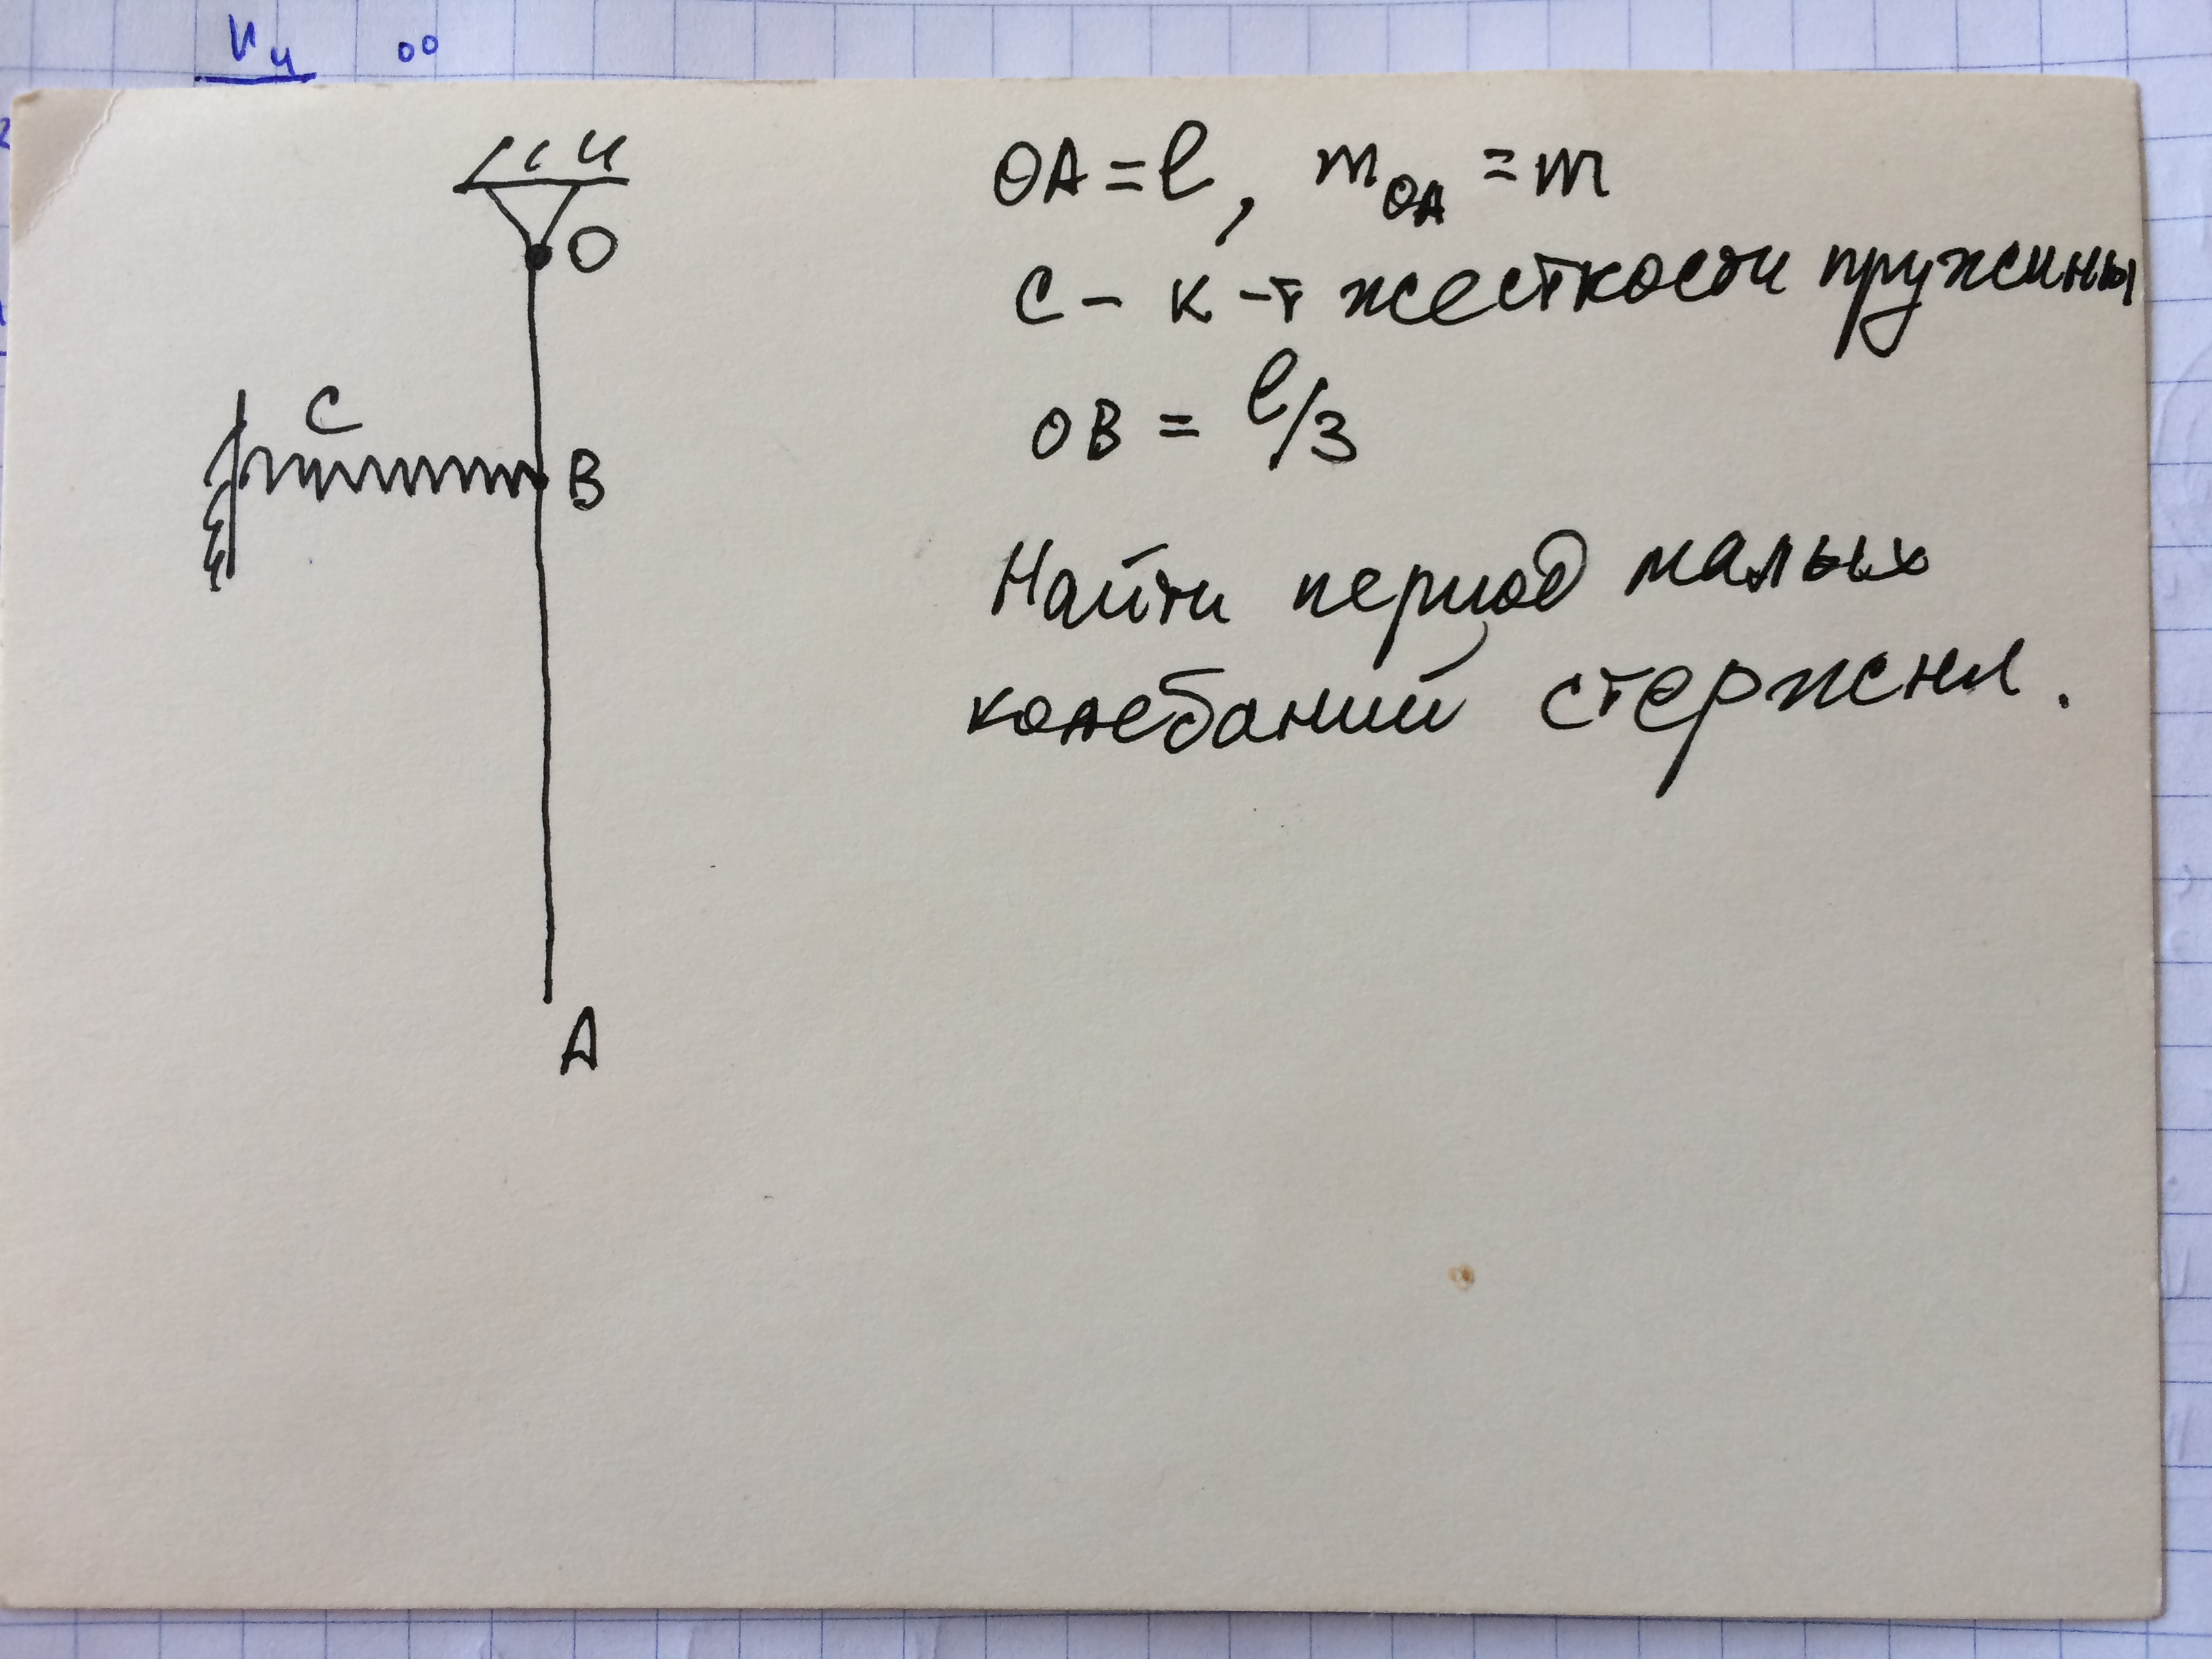 O
C
B
A
OA = l, m_OA = m
c - к-т жесткости пружины
OB = l/3
Найти период малых
колебаний стержня.